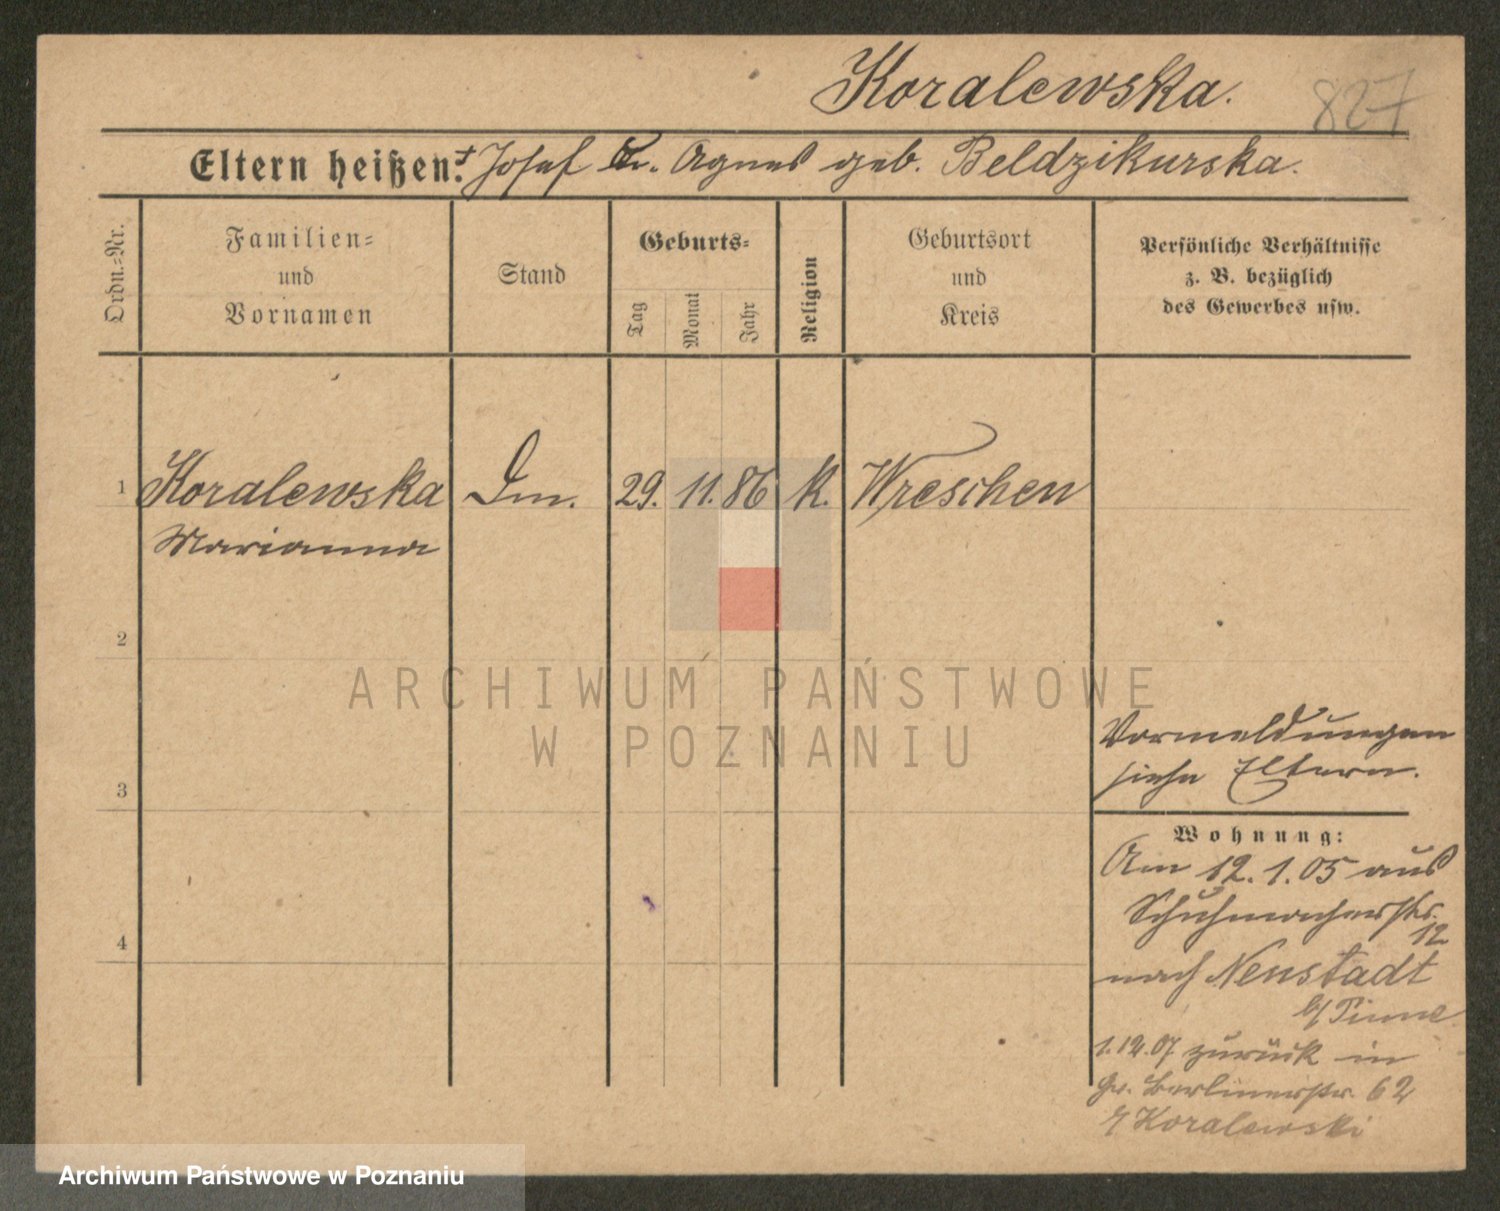 Koralewska.
827
Eltern heißen: Josef u. Agnes geb. Beldzikurska.
Ordn.-Nr.
Familien-
und
Vornamen
Stand
Geburts-
Tag
Monat
Jahr
Religion
Geburtsort
und
Kreis
Persönliche Verhältnisse
z. B. bezüglich
des Gewerbes usw.
1 Koralewska Dm. 29. 11. 86 K. Wreschen
Marianna
2
ARCHIWUM PAŃSTWOWE
W POZNANIU
Vormeldungen
siehe Eltern.
3
Wohnung:
Am 12. 1. 05 aus
Schuhmacherstr.
12
4
nach Neustadt
b/ Pinne
1.12.07 zurück in
Gr. Berlinerstr. 62
Koralewski
Archiwum Państwowe w Poznaniu